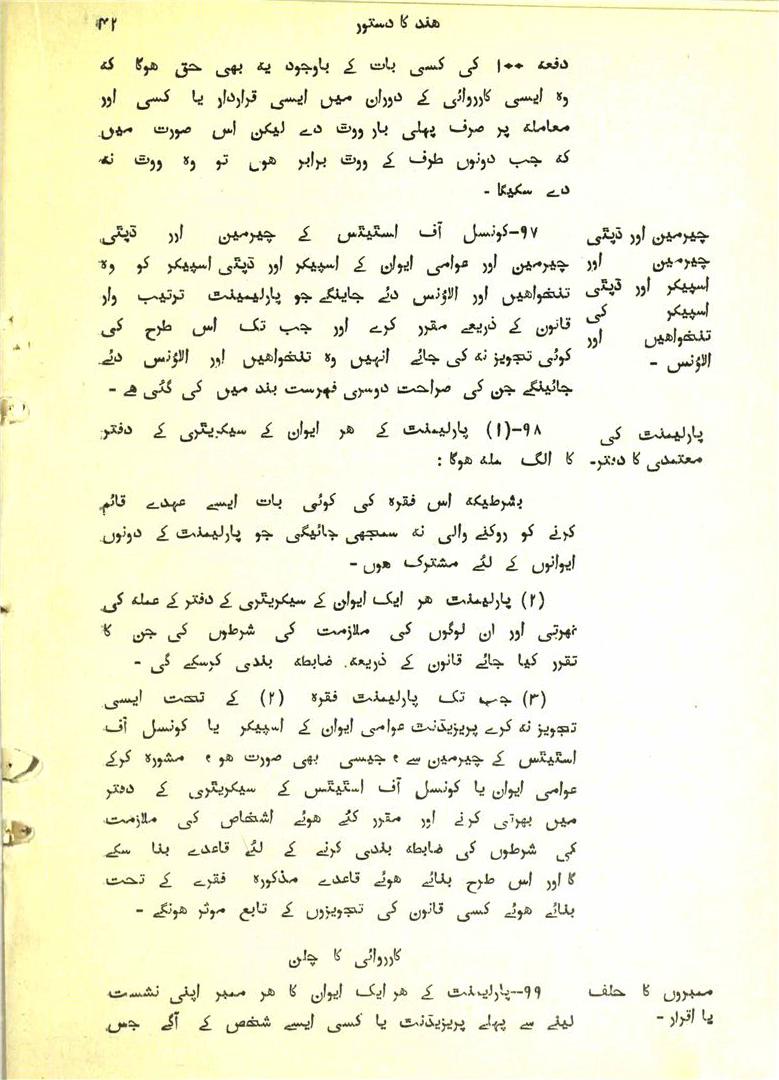 هند کا دستور
۴۲
دفعہ ۱۰۰ کی کسی بات کے باوجود یہ بھی حق ہوگا کہ
وہ ایسی کارروائی کے دوران میں ایسی قراردار یا کسی اور
معاملہ پر صرف پہلی بار ووٹ دے لیکن اس صورت میں
کہ جب دونوں طرف کے ووٹ برابر ہوں تو وہ ووٹ نہ
دے سکیگا -
چیرمین اور ڈپٹی
چیرمین اور
اسپیکر اور ڈپٹی
اسپیکر کی
تنخواہیں اور
الاؤنس -
۹۷-کونسل آف اسٹیٹس کے چیرمین اور ڈپٹی
چیرمین اور عوامی ایوان کے اسپیکر اور ڈپٹی اسپیکر کو وہ
تنخواہیں اور الاؤنس دئے جاینگے جو پارلیمینٹ ترتیب وار
قانون کے ذریعے مقرر کرے اور جب تک اس طرح کی
کوئی تجویز نہ کی جائے انہیں وہ تنخواہیں اور الاؤنس دئے
جائینگے جن کی صراحت دوسری فہرست بند میں کی گئی ہے -
پارلیمنٹ کی
معتمدی کا دفتر-
۹۸-(۱) پارلیمنٹ کے هر ایوان کے سیکریٹری کے دفتر
کا الگ عملہ ہوگا :
بشرطیکہ اس فقرہ کی کوئی بات ایسے عہدے قائم
کرنے کو روکنے والی نہ سمجھی جائیگی جو پارلیمنٹ کے دونوں
ایوانوں کے لئے مشترک ہوں -
(۲) پارلیمنٹ هر ایک ایوان کے سیکریٹری کے دفتر کے عملہ کی
بھرتی اور ان لوگوں کی ملازمت کی شرطوں کی جن کا
تقرر کیا جائے قانون کے ذریعہ ضابطہ بندی کرسکے گی -
(۳) جب تک پارلیمنٹ فقرہ (۲) کے تحت ایسی
تجویز نہ کرے پریزیڈنٹ عوامی ایوان کے اسپیکر یا کونسل آف
اسٹیٹس کے چیرمین سے، جیسی بھی صورت ہو، مشورہ کرکے
عوامی ایوان یا کونسل آف اسٹیٹس کے سیکریٹری کے دفتر
میں بھرتی کرنے اور مقرر کئے ہوئے اشخاص کی ملازمت
کی شرطوں کی ضابطہ بندی کرنے کے لئے قاعدے بنا سکے
گا اور اس طرح بنائے ہوئے قاعدے مذکورہ فقرے کے تحت
بنائے ہوئے کسی قانون کی تجویزوں کے تابع موثر ہونگے -
کارروائی کا چلن
ممبروں کا حلف
یا اقرار -
۹۹-پارلیمنٹ کے هر ایک ایوان کا هر ممبر اپنی نشست
لینے سے پہلے پریزیڈنٹ یا کسی ایسے شخص کے آگے جس